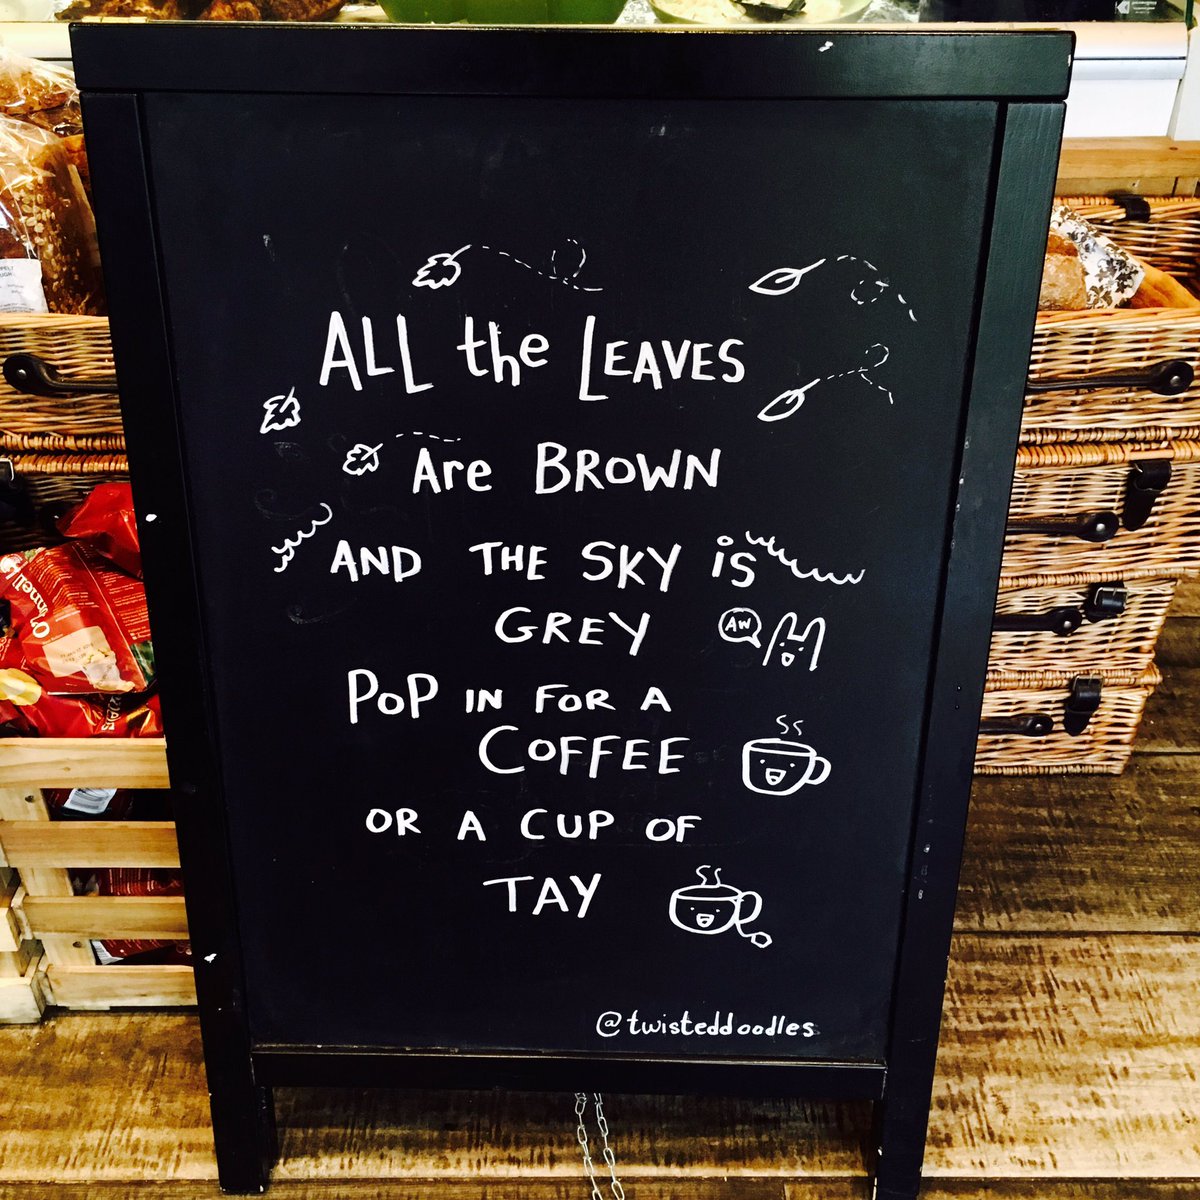 ALL the LEAVES
Are BROWN
AND THE SKY is
GREY
AW
POP IN FOR A
COFFEE
OR A CUP OF
TAY
@twisteddoodles
O'Donnells